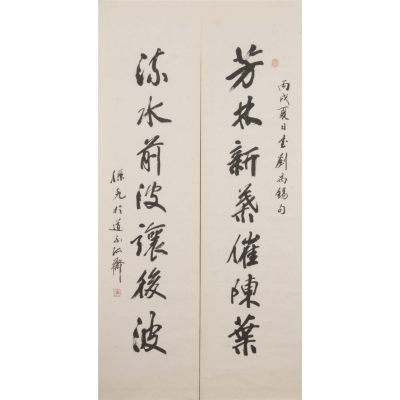 丙戌夏日書劉禹錫句
芳林新葉催陳葉
流水前波讓後波
於道 齋